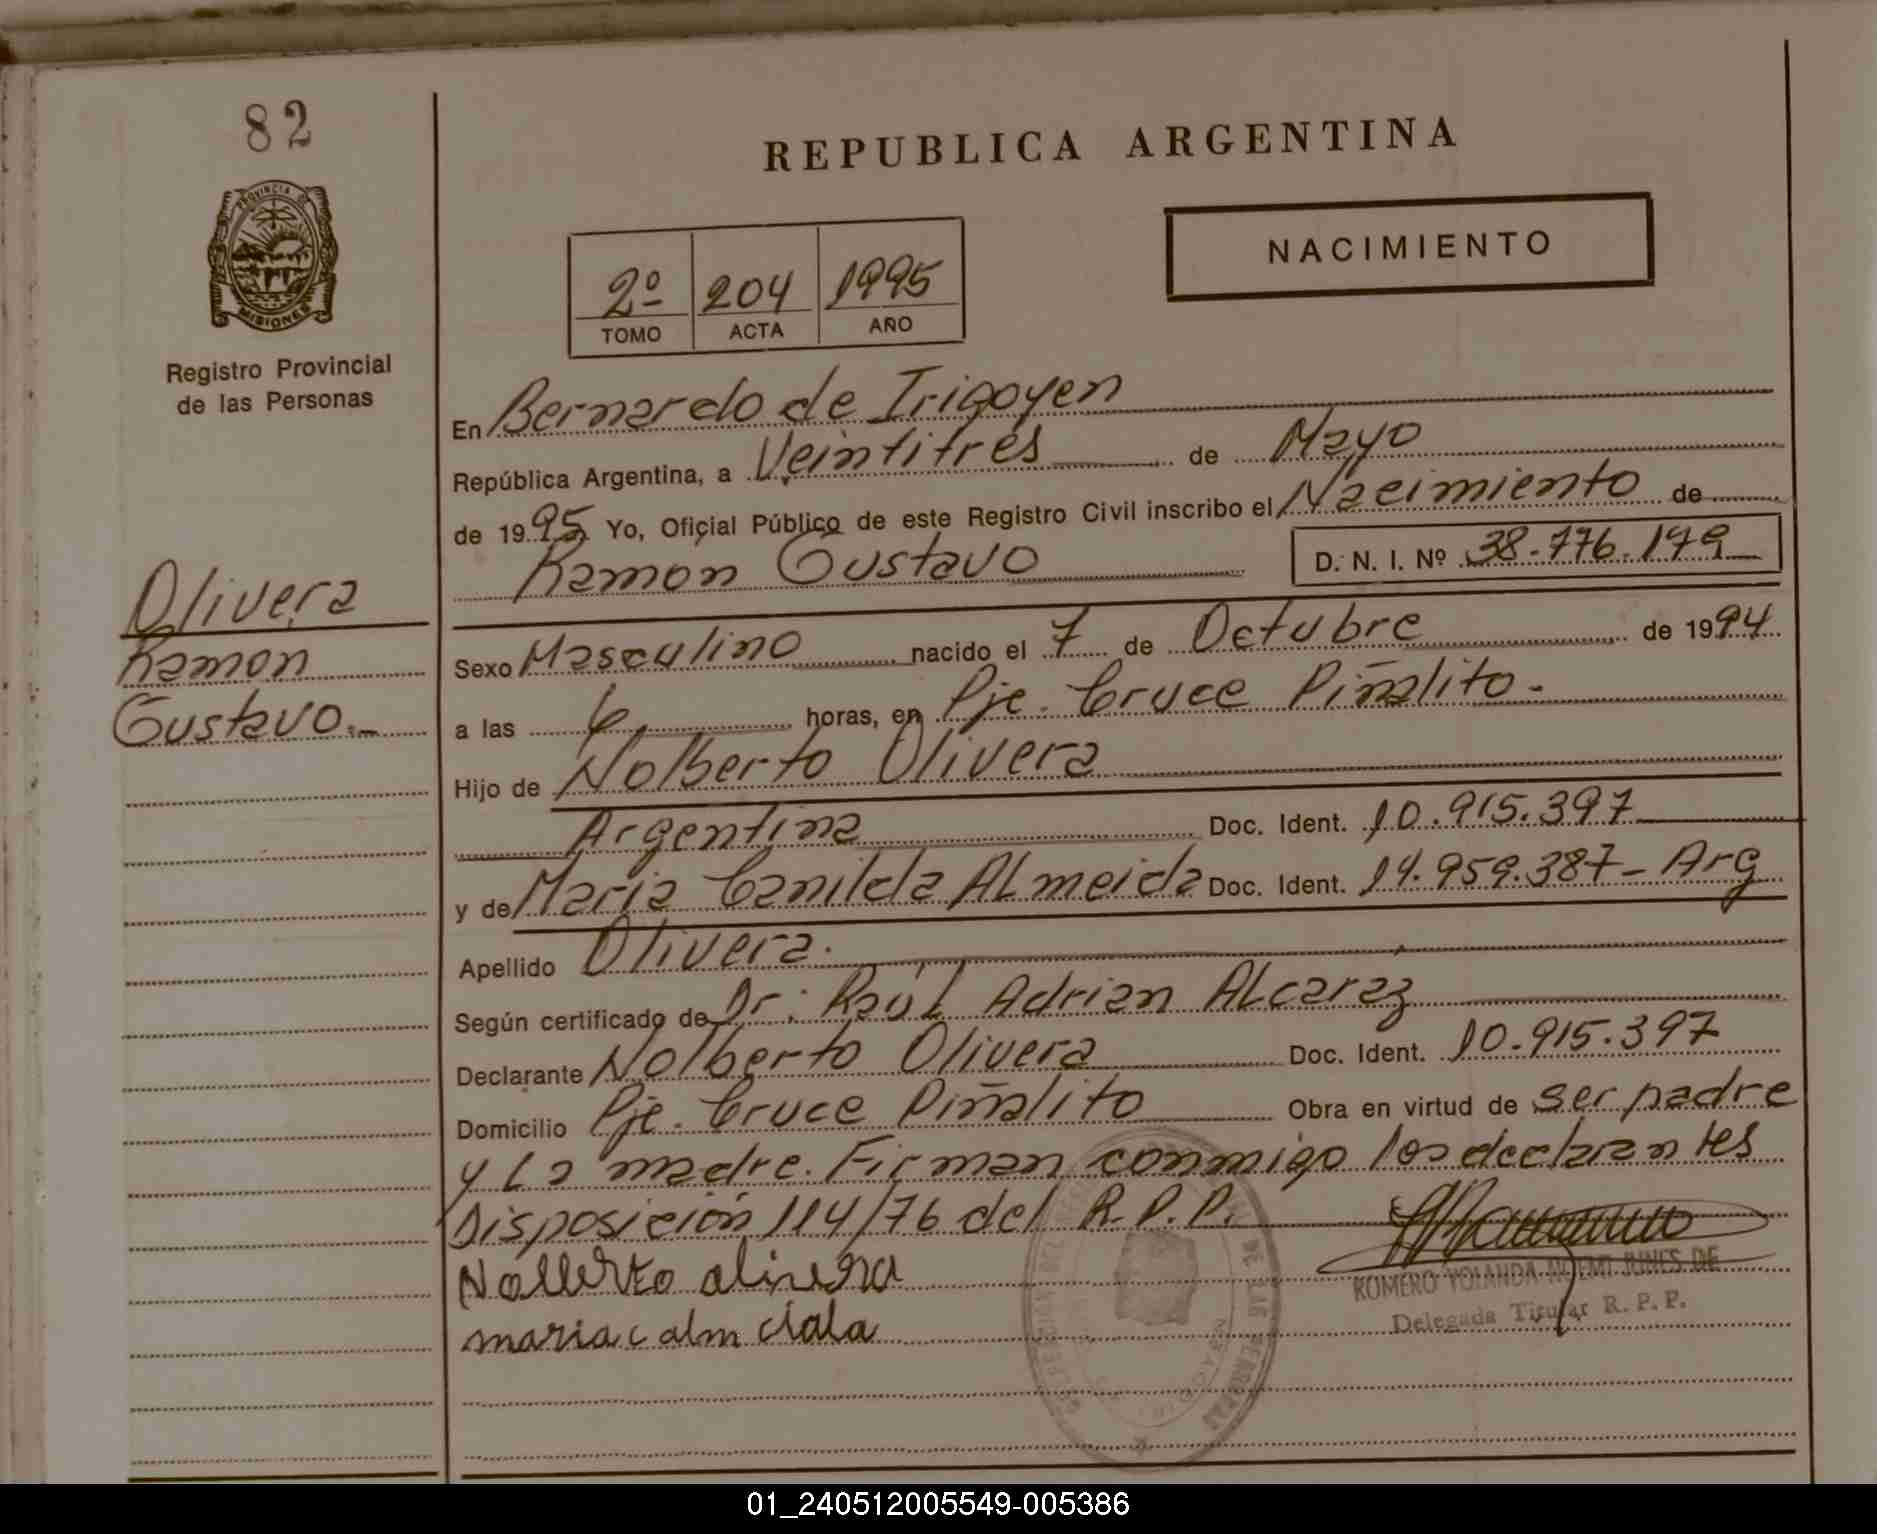 82
REPUBLICA ARGENTINA
PROVINCIA D
MISIONES
Registro Provincial
de las Personas
NACIMIENTO
2º 204 1995
TOMO ACTA AÑO
En Bernardo de Irigoyen
República Argentina, a Veintitrés de Mayo
de 1995 Yo, Oficial Público de este Registro Civil inscribo el Nacimiento de
Ramón Gustavo D. N. I. Nº 38.776.179
Olivera
Ramón
Gustavo.-
Sexo Masculino nacido el 7 de Octubre de 1994
a las 6 horas, en Pje. Cruce Piñalito.-
Hijo de Nolberto Olivera
Argentina Doc. Ident. 10.915.397
y de Maria Canilda Almeida Doc. Ident. 14.959.387- Arg
Apellido Olivera.
Según certificado de Dr: Raúl Adrian Alcaraz
Declarante Nolberto Olivera Doc. Ident. 10.915.397
Domicilio Pje. Cruce Piñalito Obra en virtud de ser padre
y la madre. Firman conmigo los declarantes
Disposición 114/76 del R.P.P.
Nolberto olivera
maria c alm
ROMERO YOLANDA NOEMI JUNES DE
Delegada Titular R. P. P.
01_240512005549-005386